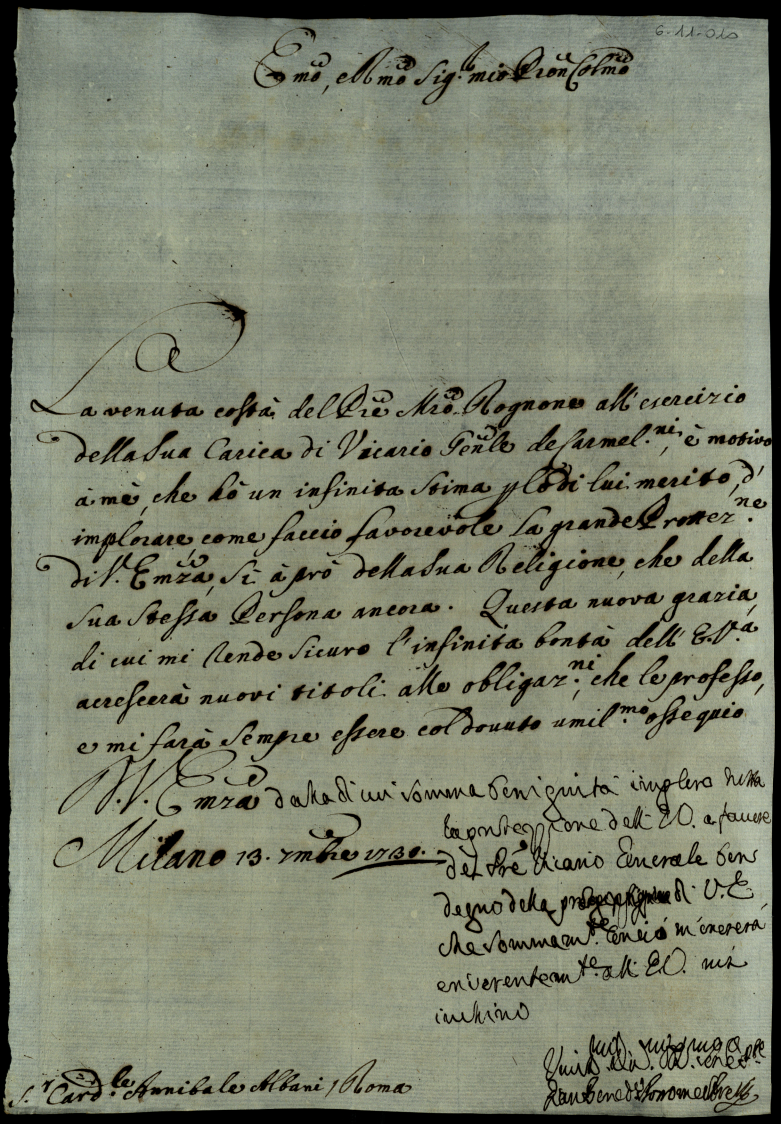 6-11-010
Emo, e Rmo Sig.r mio Pron Colmo
La venuta costà del Pre Mro Rognone all'esercizio
della Sua Carica di Vicario Genle de Carmel.ni, è motivo
à mè, che hò un infinita stima p lo di lui merito, d'
implorare, come faccio favorevole la grande Protez.ne
di V. Emza, sì à prò della Sua Religione, che della
Sua stessa Persona ancora. Questa nuova grazia,
di cui mi rende sicuro l'infinita bontà dell' E.V.a
acrescerà nuovi titoli alle obligaz.ni, che le professo,
e mi farà sempre essere col dovuto umil.mo ossequio
D.V. Emza dalla di cui somma benignità imploro
la protezzione dell' E.V. a favore
Milano 13. 7mbre 1730.
del Pre Vicario Generale ben
degno della di V.E.
che sommam.te
e riverentem.te all' E.V. mi
inchino
S.r Card.le Annibale Albani / Roma